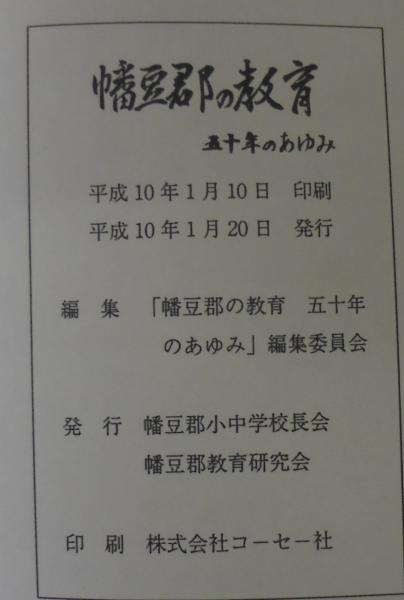 幡豆郡の教育
五十年のあゆみ
平成10年1月10日　印刷
平成10年1月20日　発行
編　集　「幡豆郡の教育　五十年
のあゆみ」編集委員会
発　行　幡豆郡小中学校長会
幡豆郡教育研究会
印　刷　株式会社コーセー社